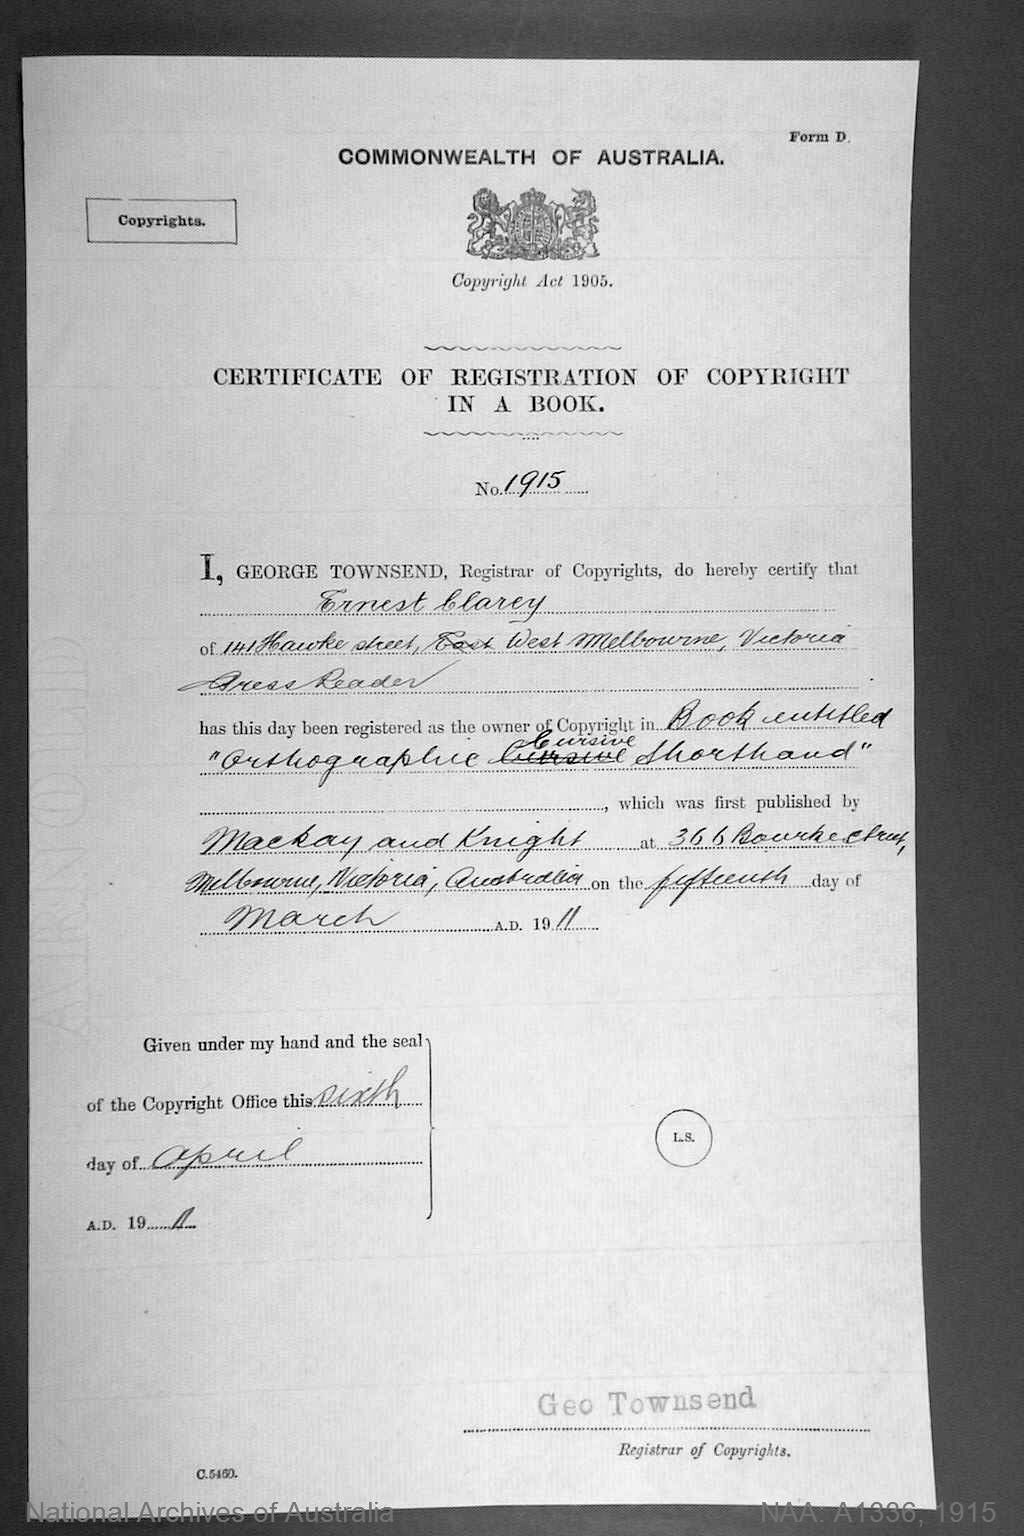 Form D.
COMMONWEALTH OF AUSTRALIA.
Copyrights.
Copyright Act 1905.
CERTIFICATE OF REGISTRATION OF COPYRIGHT
IN A BOOK.
No. 1915
I, GEORGE TOWNSEND, Registrar of Copyrights, do hereby certify that
Ernest Clarey
of 141 Hawke street, East West Melbourne, Victoria
Press Reader
has this day been registered as the owner of Copyright in Book entitled
Cursive
"Orthographic Cursive Shorthand"
, which was first published by
Mackay and Knight at 366 Bourke Street,
Melbourne, Victoria, Australia on the fifteenth day of
March A.D. 1911
Given under my hand and the seal
of the Copyright Office this sixth
day of April
A.D. 1911
L.S.
Geo Townsend
Registrar of Copyrights.
C.5460.
National Archives of Australia NAA: A1336, 1915